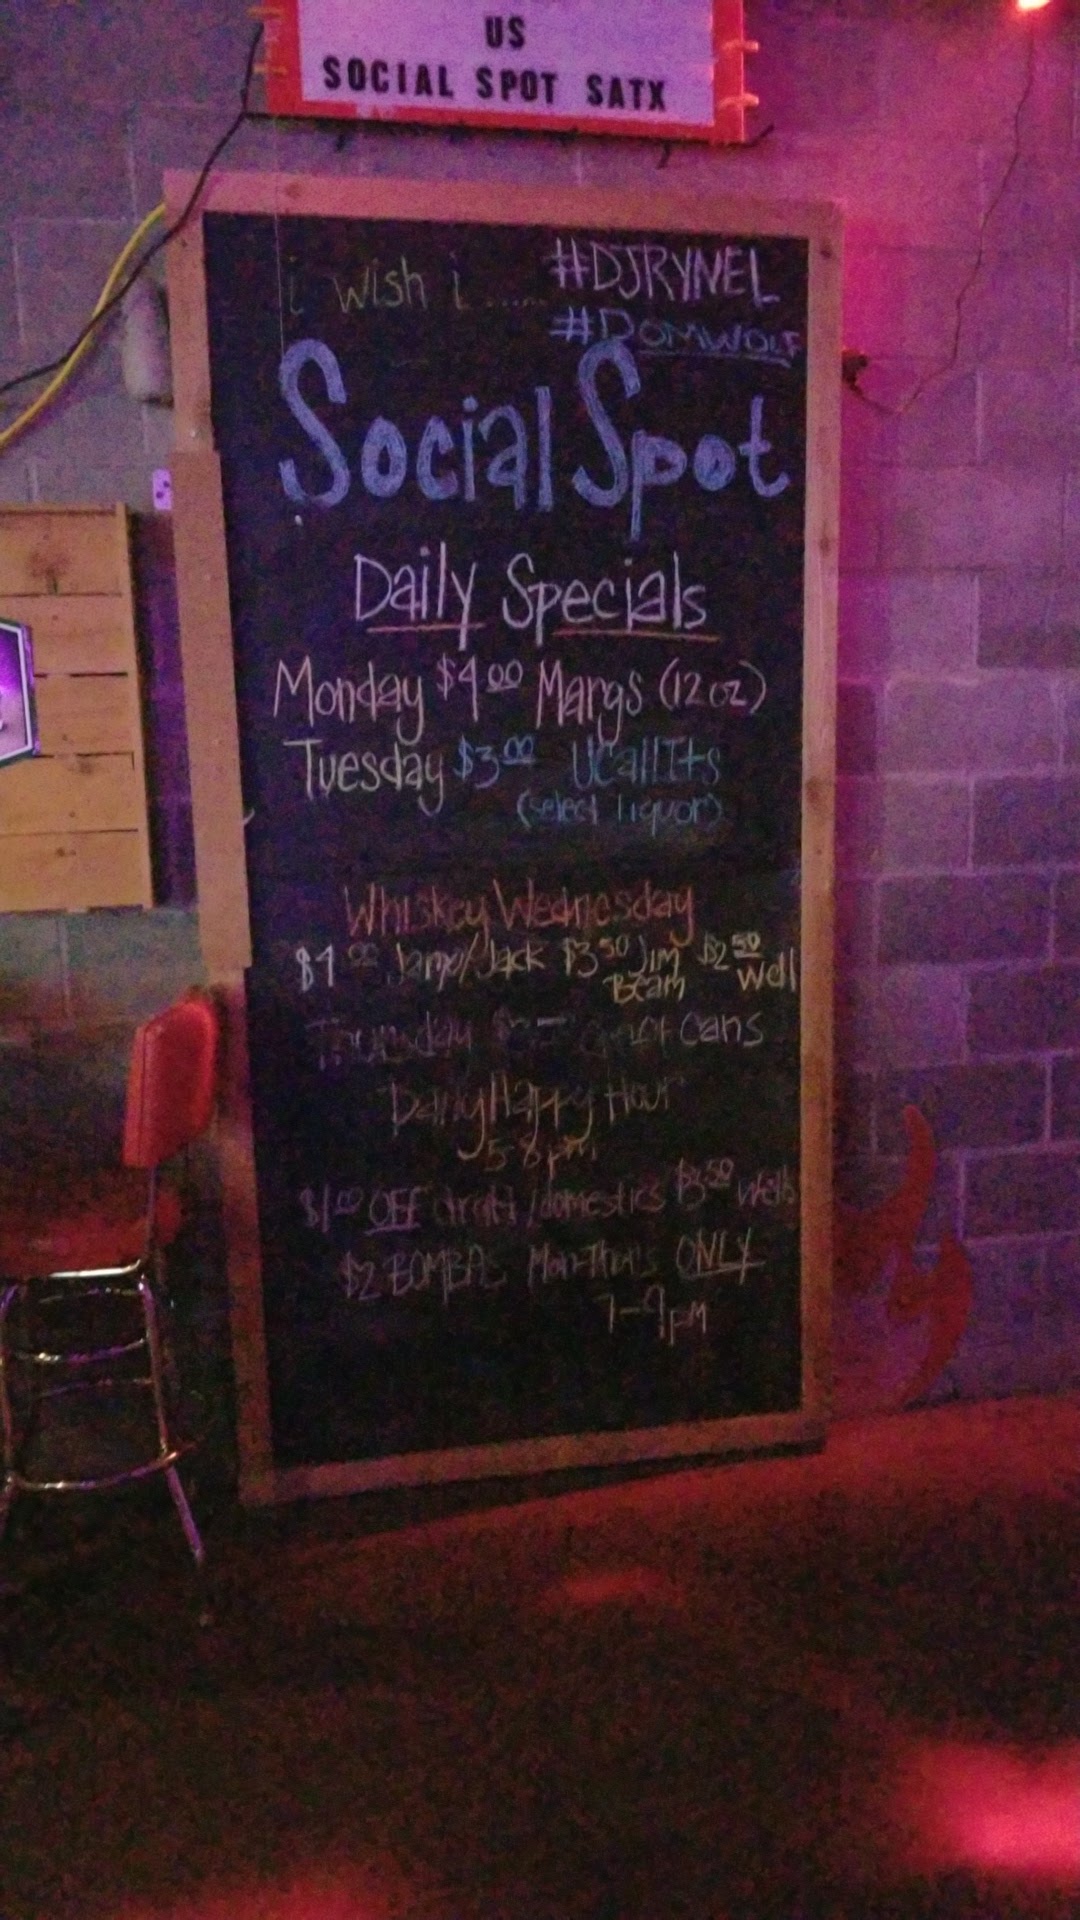 US
SOCIAL SPOT SATX
i wish i ...... #DJRYNEL
#DOMWOLF
Social Spot
Daily Specials
Monday $4.00 Margs (12 oz)
Tuesday $3.00 UCallIts
(select liquor)
Whiskey Wednesday
$4.00 Jamo/Jack $3.50 Jim Beam $2.50 Well
Thursday Craft Cans
Daily Happy Hour
5-8pm
$1.00 OFF draft/domestics $3.50 Wells
$2 BOMBAS Mon-Thurs ONLY
7-9pm